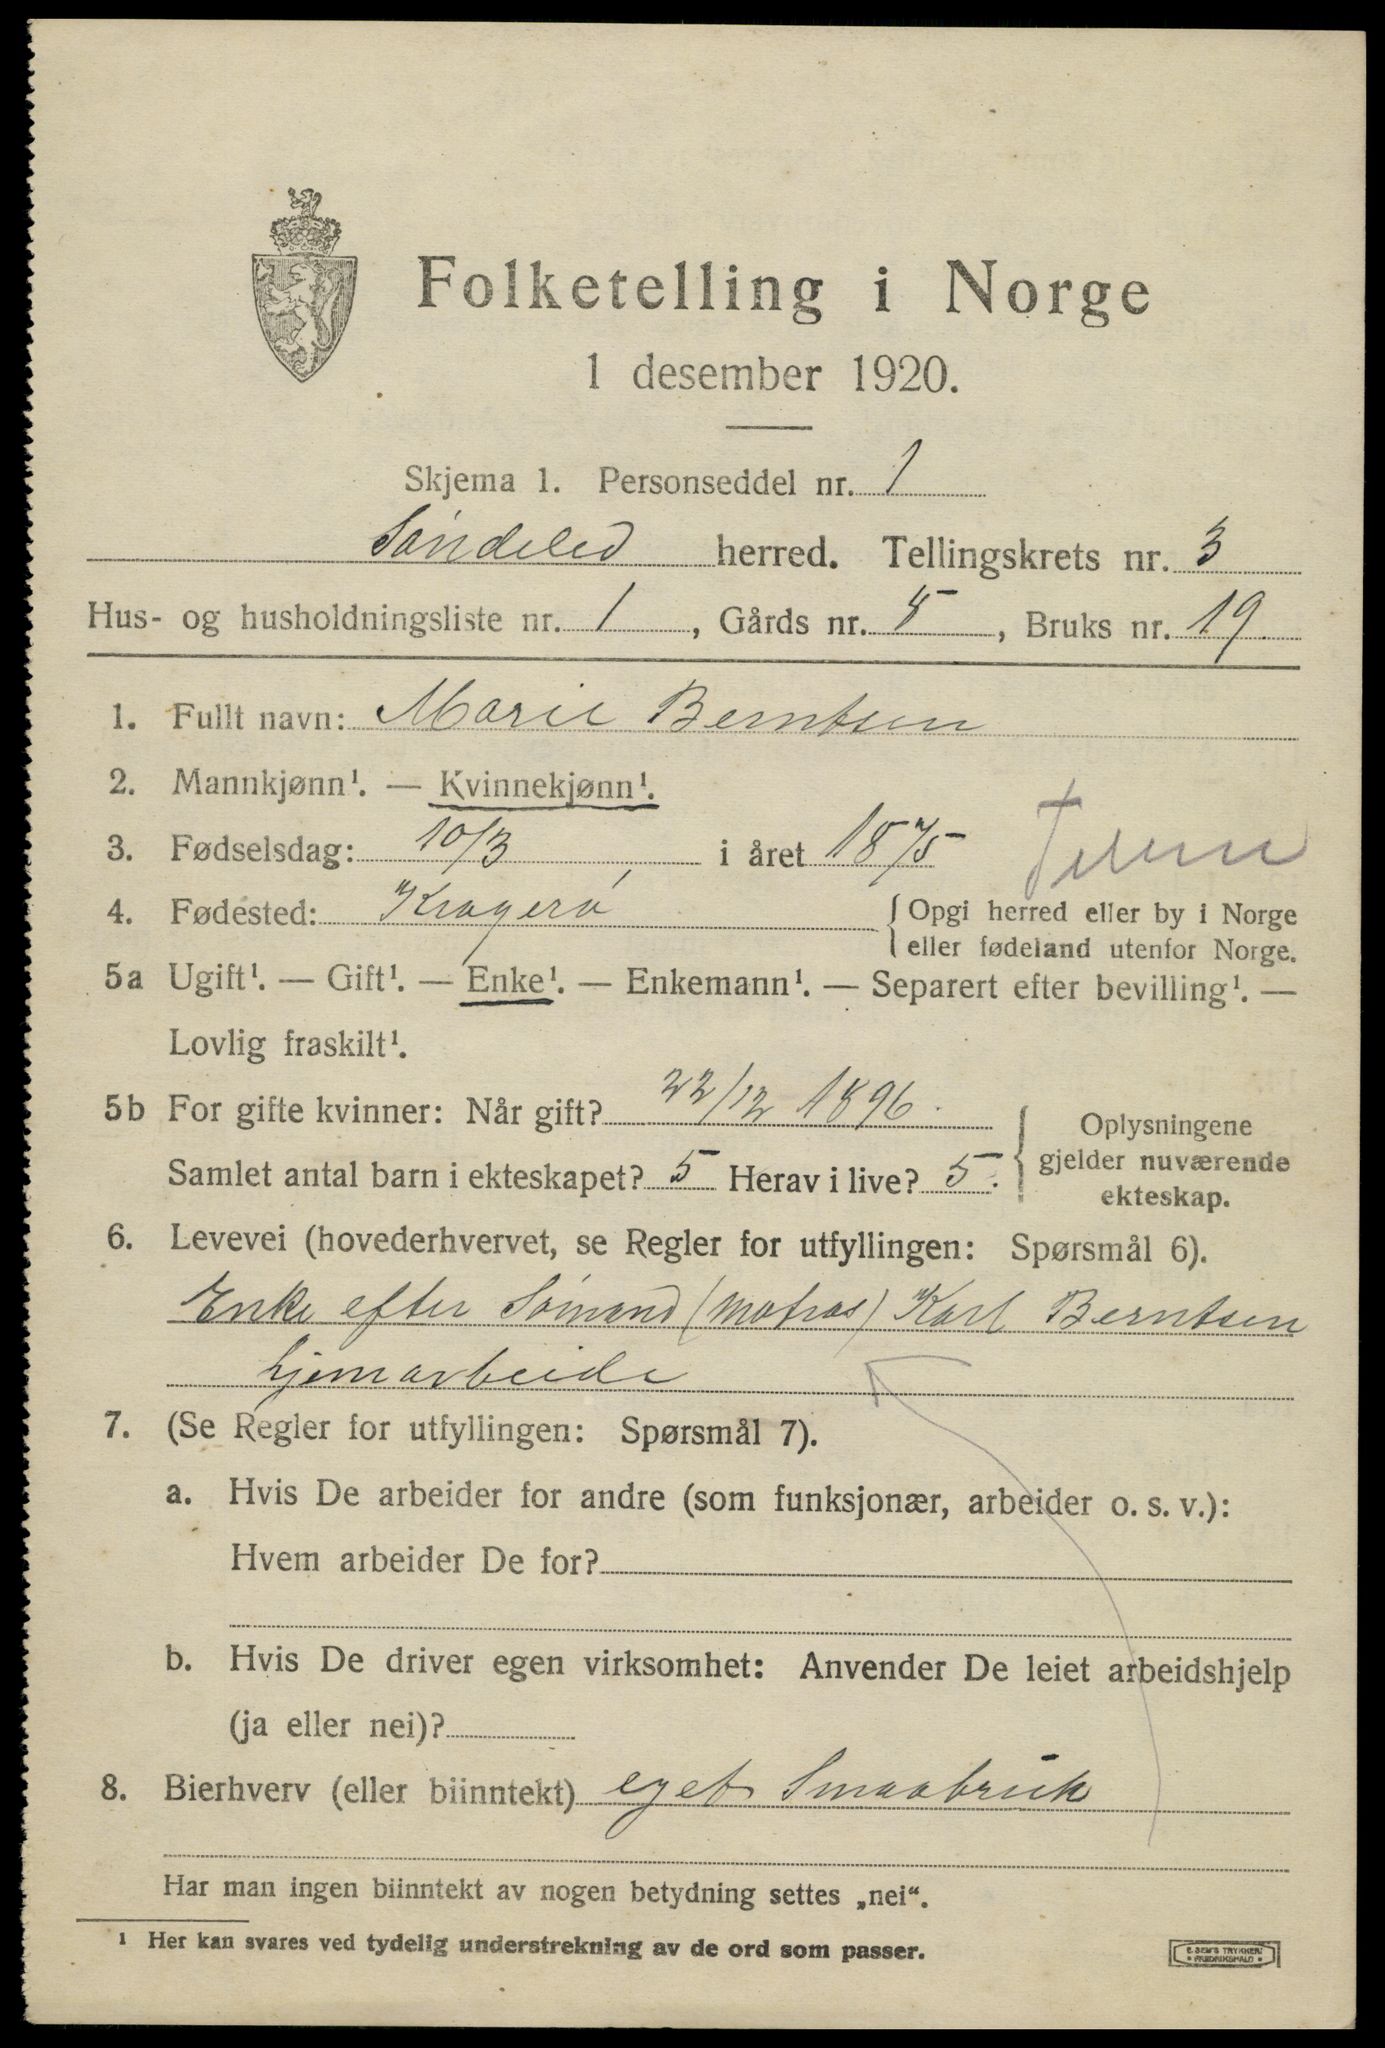 Folketelling i Norge
1 desember 1920.
Skjema 1. Personseddel nr. 1
Søndeled herred. Tellingskrets nr. 3
Hus- og husholdningsliste nr. 1, Gårds nr. 5, Bruks nr. 19
1. Fullt navn: Marie Berntsen
2. Mannkjønn¹. — Kvinnekjønn¹.
3. Fødselsdag: 10/3 i året 1875
4. Fødested: Kragerø { Opgi herred eller by i Norge
eller fødeland utenfor Norge.
5a Ugift¹. — Gift¹. — Enke¹. — Enkemann¹. — Separert efter bevilling¹. —
Lovlig fraskilt¹.
5b For gifte kvinner: Når gift? 22/12 1896.
Samlet antal barn i ekteskapet? 5 Herav i live? 5.
Oplysningene
gjelder nuværende
ekteskap.
6. Levevei (hovederhvervet, se Regler for utfyllingen: Spørsmål 6).
Enke efter Sømand (matros) Karl Berntsen
hjemarbeide
7. (Se Regler for utfyllingen: Spørsmål 7).
a. Hvis De arbeider for andre (som funksjonær, arbeider o. s. v.):
Hvem arbeider De for?
b. Hvis De driver egen virksomhet: Anvender De leiet arbeidshjelp
(ja eller nei)?
8. Bierhverv (eller biinntekt) eget Smaabruk
Har man ingen biinntekt av nogen betydning settes „nei“.
¹ Her kan svares ved tydelig understrekning av de ord som passer.
E. SEM'S TRYKKERI
FREDRIKSHALD